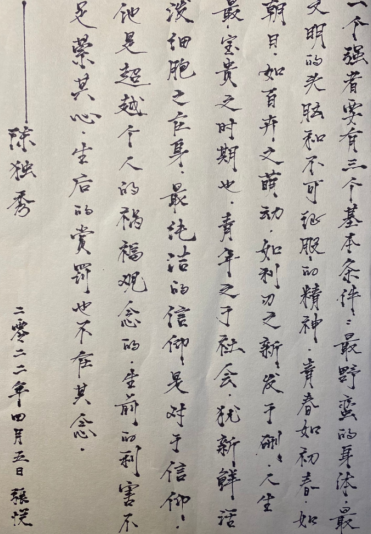 一个强者要有三个基本条件：最野蛮的身体，最
文明的头脑和不可征服的精神。青春如初春，如
朝日，如百卉之萌动，如利刃之新发于硎，人生
最宝贵之时期也。青年之于社会，犹新鲜活
泼细胞之在身。最纯洁的信仰是对于信仰，
他是超越个人的祸福观念的，生前的利害不
足荣其心，生后的赏罚也不在其念。
——陈独秀
二零二二年四月五日 張悦